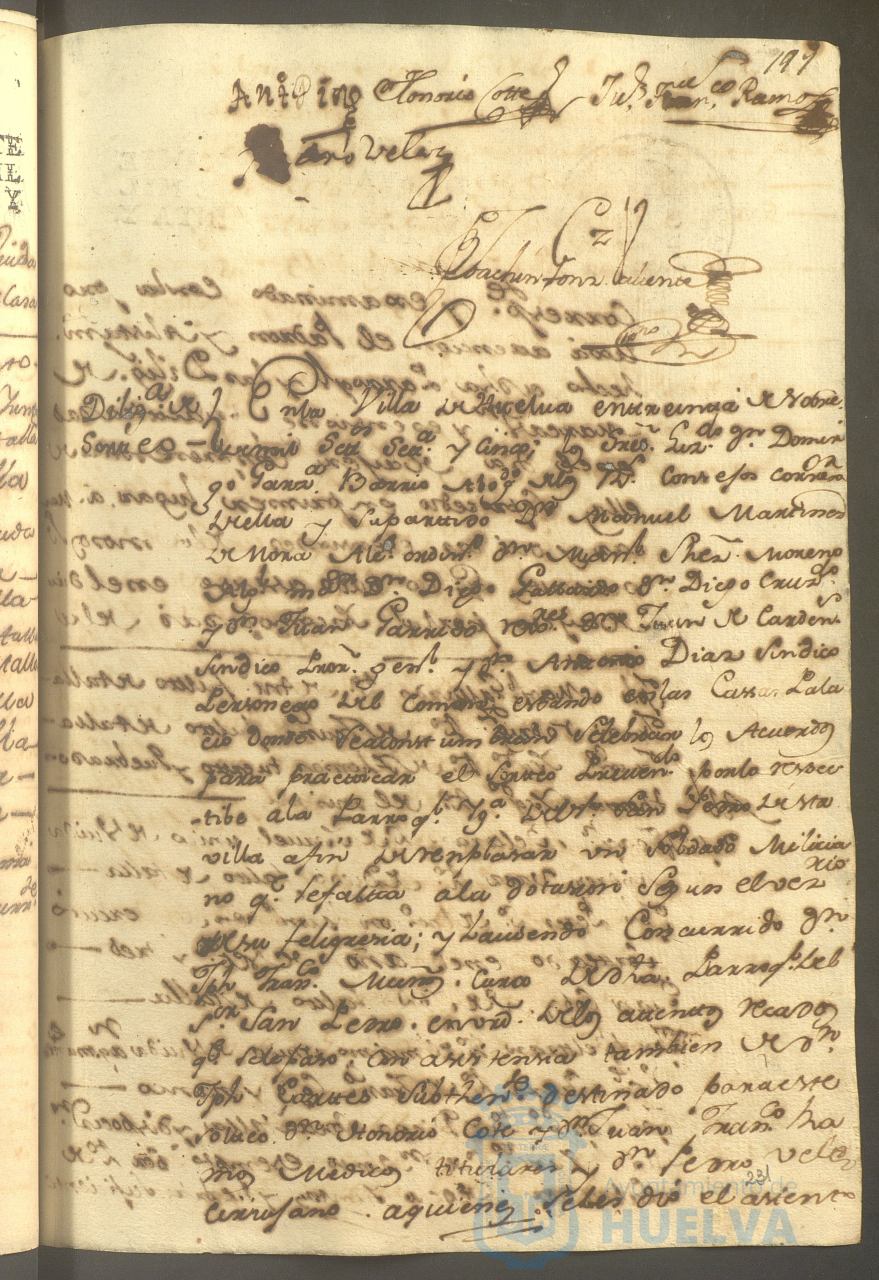 197
Antt.º Diego Honorio Cotte Juº. Franco. Ramos
Velez
Joachin Gonz. Valiente
Diliga. de En la Villa de Huelva en treinta de Nobre.
Sorteo de mil Setts. Sesª. y Cinq; los Sres. Lizdo. Dn. Domin
go Garza. Barrio Abogo. de los Rs. Consejos corregor.
de ella y su partido Dn. Manuel Martines
de Mora Alce. ordino. Dn. Manl. Shez. Moreno
Algl. mor. Dn. Diego Gallardo Dn. Diego Cruzdo.
y Dn. Juan Garrido rexres. Dn. Juan de Cardens.
Sindico Pror. genl. y Dn. Antonio Diaz Sindico
Personero del Comun; estando en las Cassas Pala
cio donde se aconstumbran Selebrar los Acuerdos
para practicar el Sorteo prevendo. por lo respec
tibo a la Parroql. Ygª. del Sr. San Pedro de esta
villa a fin de remplasar un Soldado Milicia
no qe. le falta a la dotasion Segun el vez
rio
de su feligresia; y haviendo Concurrido Dn.
Jph. Franco. Muñs. Cura de dha. Parroql. del
Sor. San Pedro. en vrd. de los atentos recados
qe. se le paso con asistensia tambien de Dn.
Jph. Subthente. destinado para este
Dn. Honorio Cote y Dn. Juan Franco. Ra
mos Medicos titulares y Dn. Pedro Velez
Cirujano a quienes se les dio el asiento
231
Ayuntamiento de
HUELVA